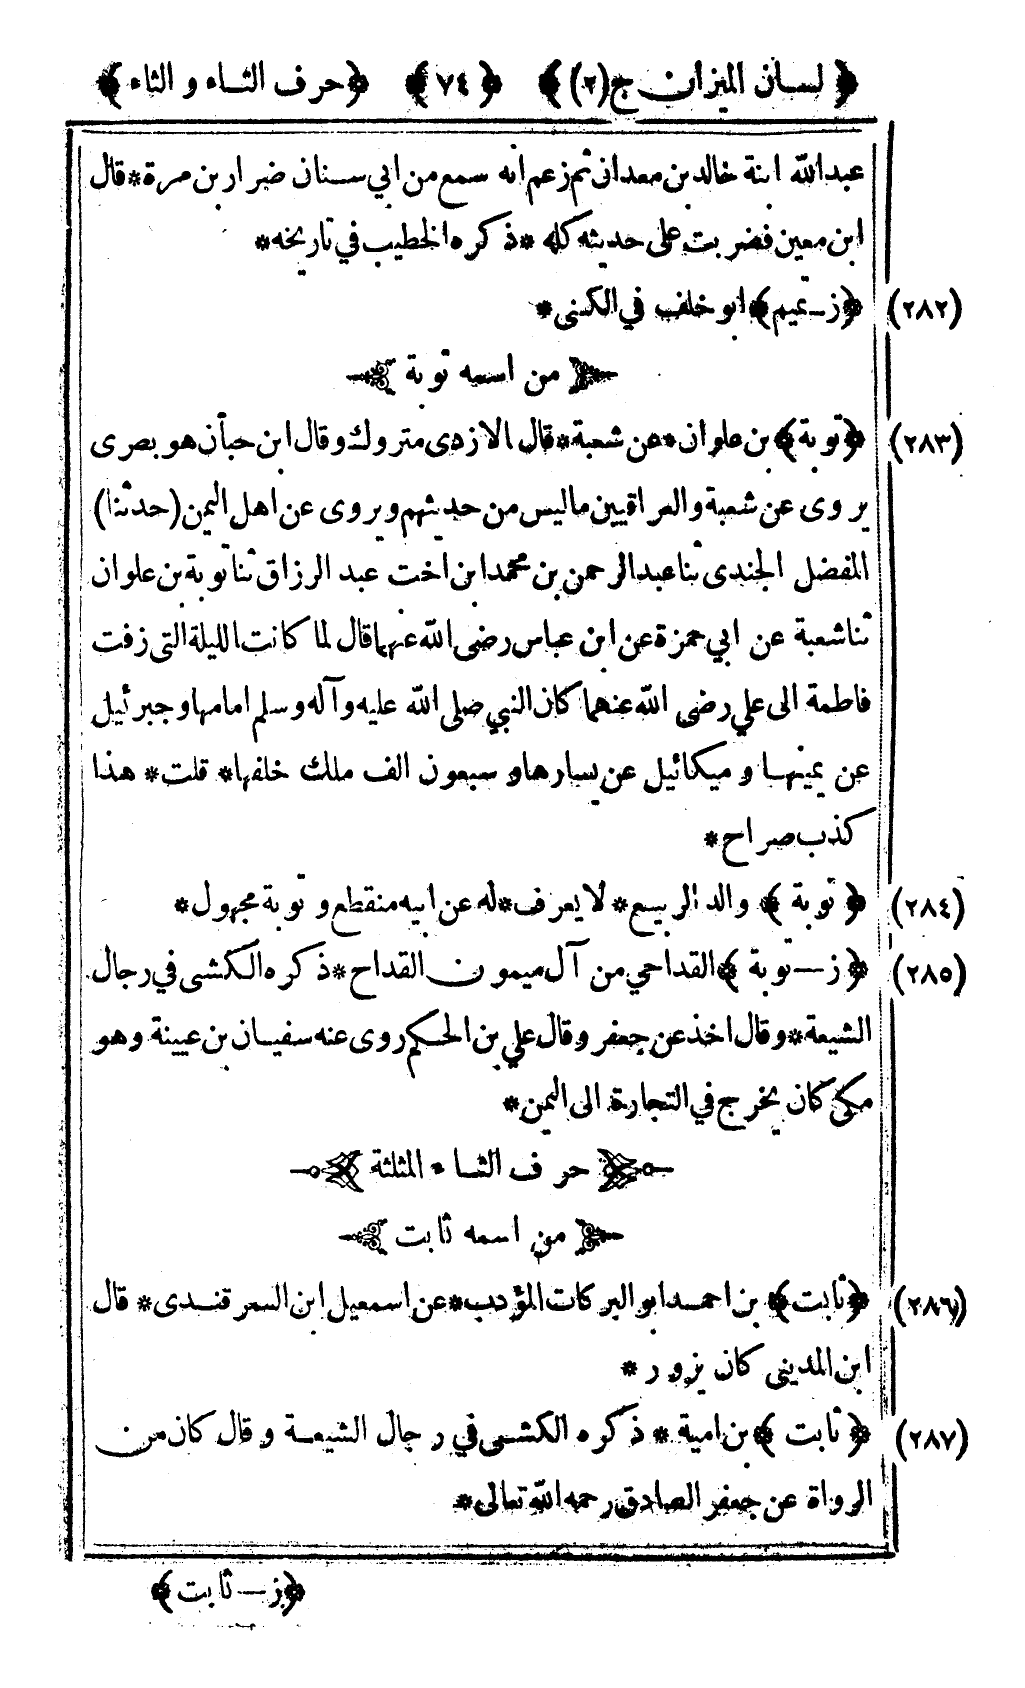 ﴿ لسان الميزان ج(٢) ﴾ ﴿ ٧٤ ﴾ ﴿ حرف التاء و الثاء ﴾
عبدالله ابنة خالد بن معدان ثم زعم انه سمع من ابي سنان ضرار بن مرة * قال
ابن معين فضربت على حديثه كله * ذكره الخطيب في تاريخه *
(٢٨٢) ﴿ ز ـ تميم ﴾ ابو خلف في الكنى *
من اسمه توبة
(٢٨٣) ﴿ توبة ﴾ بن علوان * عن شعبة * قال الازدى متروك وقال ابن حبان هو بصرى
يروى عن شعبة والعراقيين ما ليس من حديثهم ويروى عن اهل اليمن (حدثنا)
المفضل الجندى ثنا عبدالرحمن بن محمد ابن اخت عبد الرزاق ثنا توبة بن علوان
ثنا شعبة عن ابي حمزة عن ابن عباس رضى الله عنهما قال لما كانت الليلة التى زفت
فاطمة الى علي رضى الله عنهما كان النبي صلى الله عليه وآله وسلم امامها وجبرئيل
عن يمينها و ميكائيل عن يسارها و سبعون الف ملك خلفها * قلت * هذا
كذب صراح *
(٢٨٤) ﴿ توبة ﴾ والد الربيع * لا يعرف * له عن ابيه منقطع و توبة مجهول *
(٢٨٥) ﴿ ز — توبة ﴾ القداحي من آل ميمون القداح * ذكره الكشى في رجال
الشيعة * وقال اخذ عن جعفر وقال علي بن الحكم روى عنه سفيان بن عيينة وهو
مكى كان يخرج في التجارة الى اليمن *
حرف الثاء المثلثة
من اسمه ثابت
(٢٨٦) ﴿ ثابت ﴾ بن احمد ابو البركات المؤدب * عن اسمعيل ابن السمرقندى * قال
ابن المدينى كان يزور *
(٢٨٧) ﴿ ثابت ﴾ بن امية * ذكره الكشى في رجال الشيعة و قال كان من
الرواة عن جعفر الصادق رحمه الله تعالى *
﴿ ز — ثابت ﴾